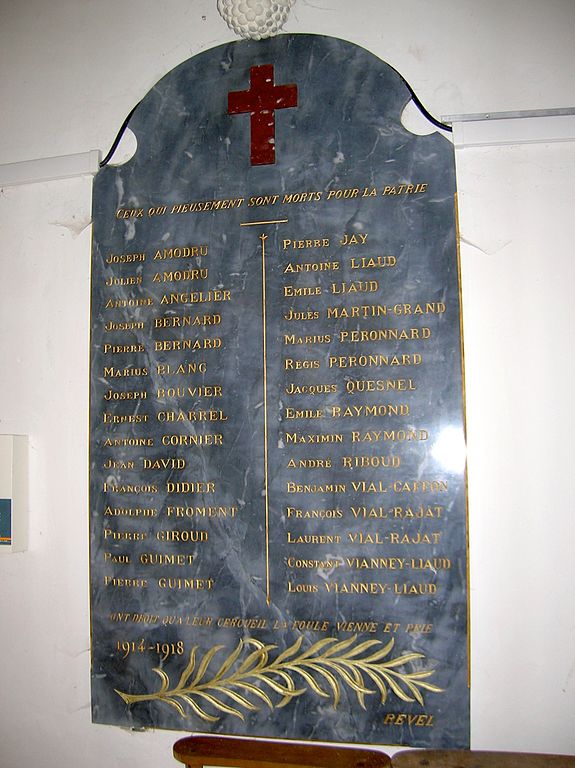 CEUX QUI PIEUSEMENT SONT MORTS POUR LA PATRIE
JOSEPH AMODRU
JULIEN AMODRU
ANTOINE ANGELIER
JOSEPH BERNARD
PIERRE BERNARD
MARIUS BLANC
JOSEPH BOUVIER
ERNEST CHARREL
ANTOINE CORNIER
JEAN DAVID
FRANÇOIS DIDIER
ADOLPHE FROMENT
PIERRE GIROUD
PAUL GUIMET
PIERRE GUIMET
PIERRE JAY
ANTOINE LIAUD
EMILE LIAUD
JULES MARTIN-GRAND
MARIUS PERONNARD
REGIS PERONNARD
JACQUES QUESNEL
EMILE RAYMOND
MAXIMIN RAYMOND
ANDRE RIBOUD
BENJAMIN VIAL-CAFFON
FRANÇOIS VIAL-RAJAT
LAURENT VIAL-RAJAT
CONSTANT VIANNEY-LIAUD
LOUIS VIANNEY-LIAUD
ONT DROIT QU'A LEUR CERCUEIL LA FOULE VIENNE ET PRIE
1914-1918
REVEL